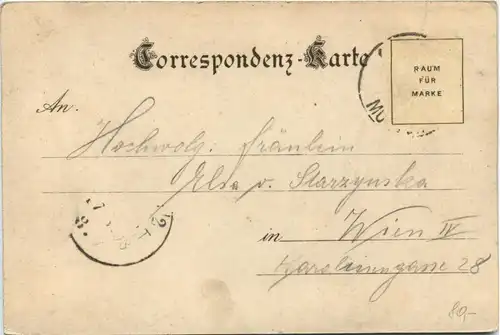 Correspondenz-Karte
RAUM
FÜR
MARKE
An
Hochwolg. Fräulein
Else v. Starzynska
in Wien IV
Karolinengasse 28
80,-